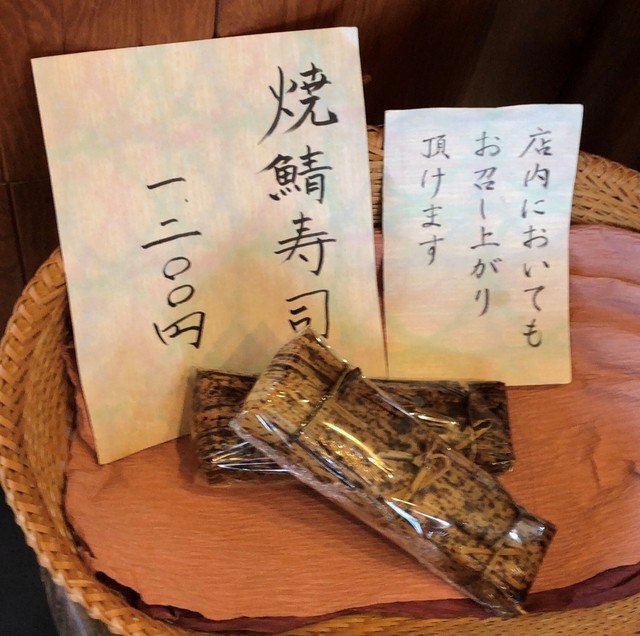 焼鯖寿司
一、二〇〇円
店内においても
お召し上がり
頂けます